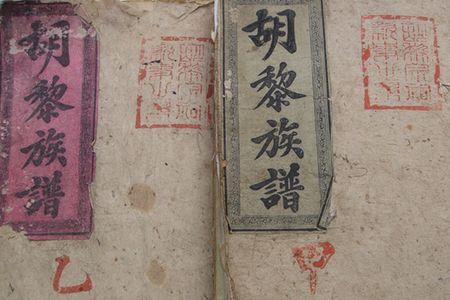 胡黎族譜
乙
胡黎族譜
甲